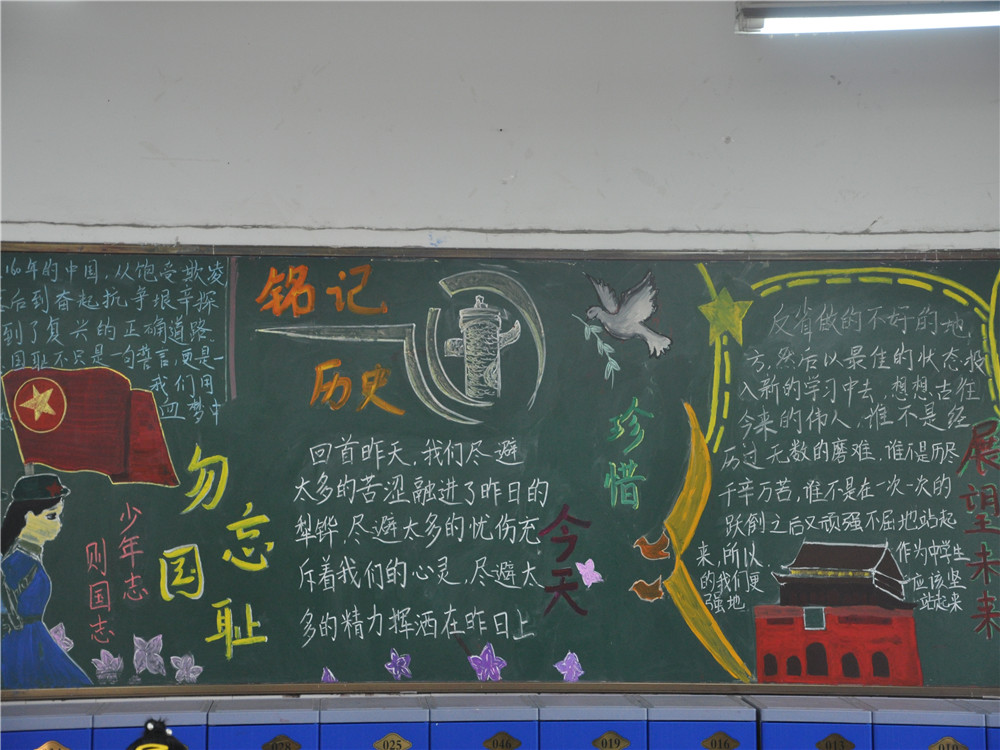 160年的中国,从饱受欺凌
后到奋起抗争艰辛探
到了复兴的正确道路.
国耻不只是一句誓言,更是一
我们用
血 梦中
勿忘
国耻
少年志
则国志
铭记
历史
回首昨天,我们尽避
太多的苦涩融进了昨日的
犁铧,尽避太多的忧伤充
斥着我们的心灵,尽避太
多的精力挥洒在昨日上
珍惜
今天
反省做的不好的地
方,然后以最佳的状态投
入新的学习中去,想想古往
今来的伟人,谁不是经
历过无数的磨难,谁不是历尽
千辛万苦,谁不是在一次一次的
跌倒之后又顽强不屈地站起
来,所以,作为中学生
的我们更应该坚
强地站起来
展望未来
028
025
046
019
016
013